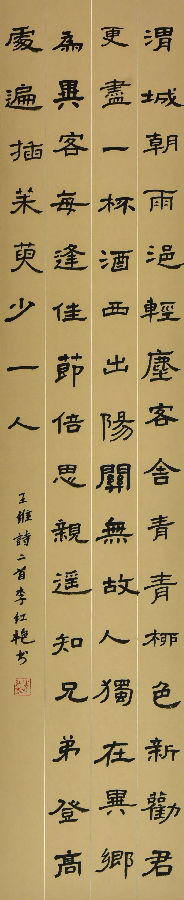 渭城朝雨浥輕塵客舍青青柳色新勸君
更盡一杯酒西出陽關無故人獨在異鄉
為異客每逢佳節倍思親遥知兄弟登高
處遍插茱萸少一人
王維詩二首李紅艳书